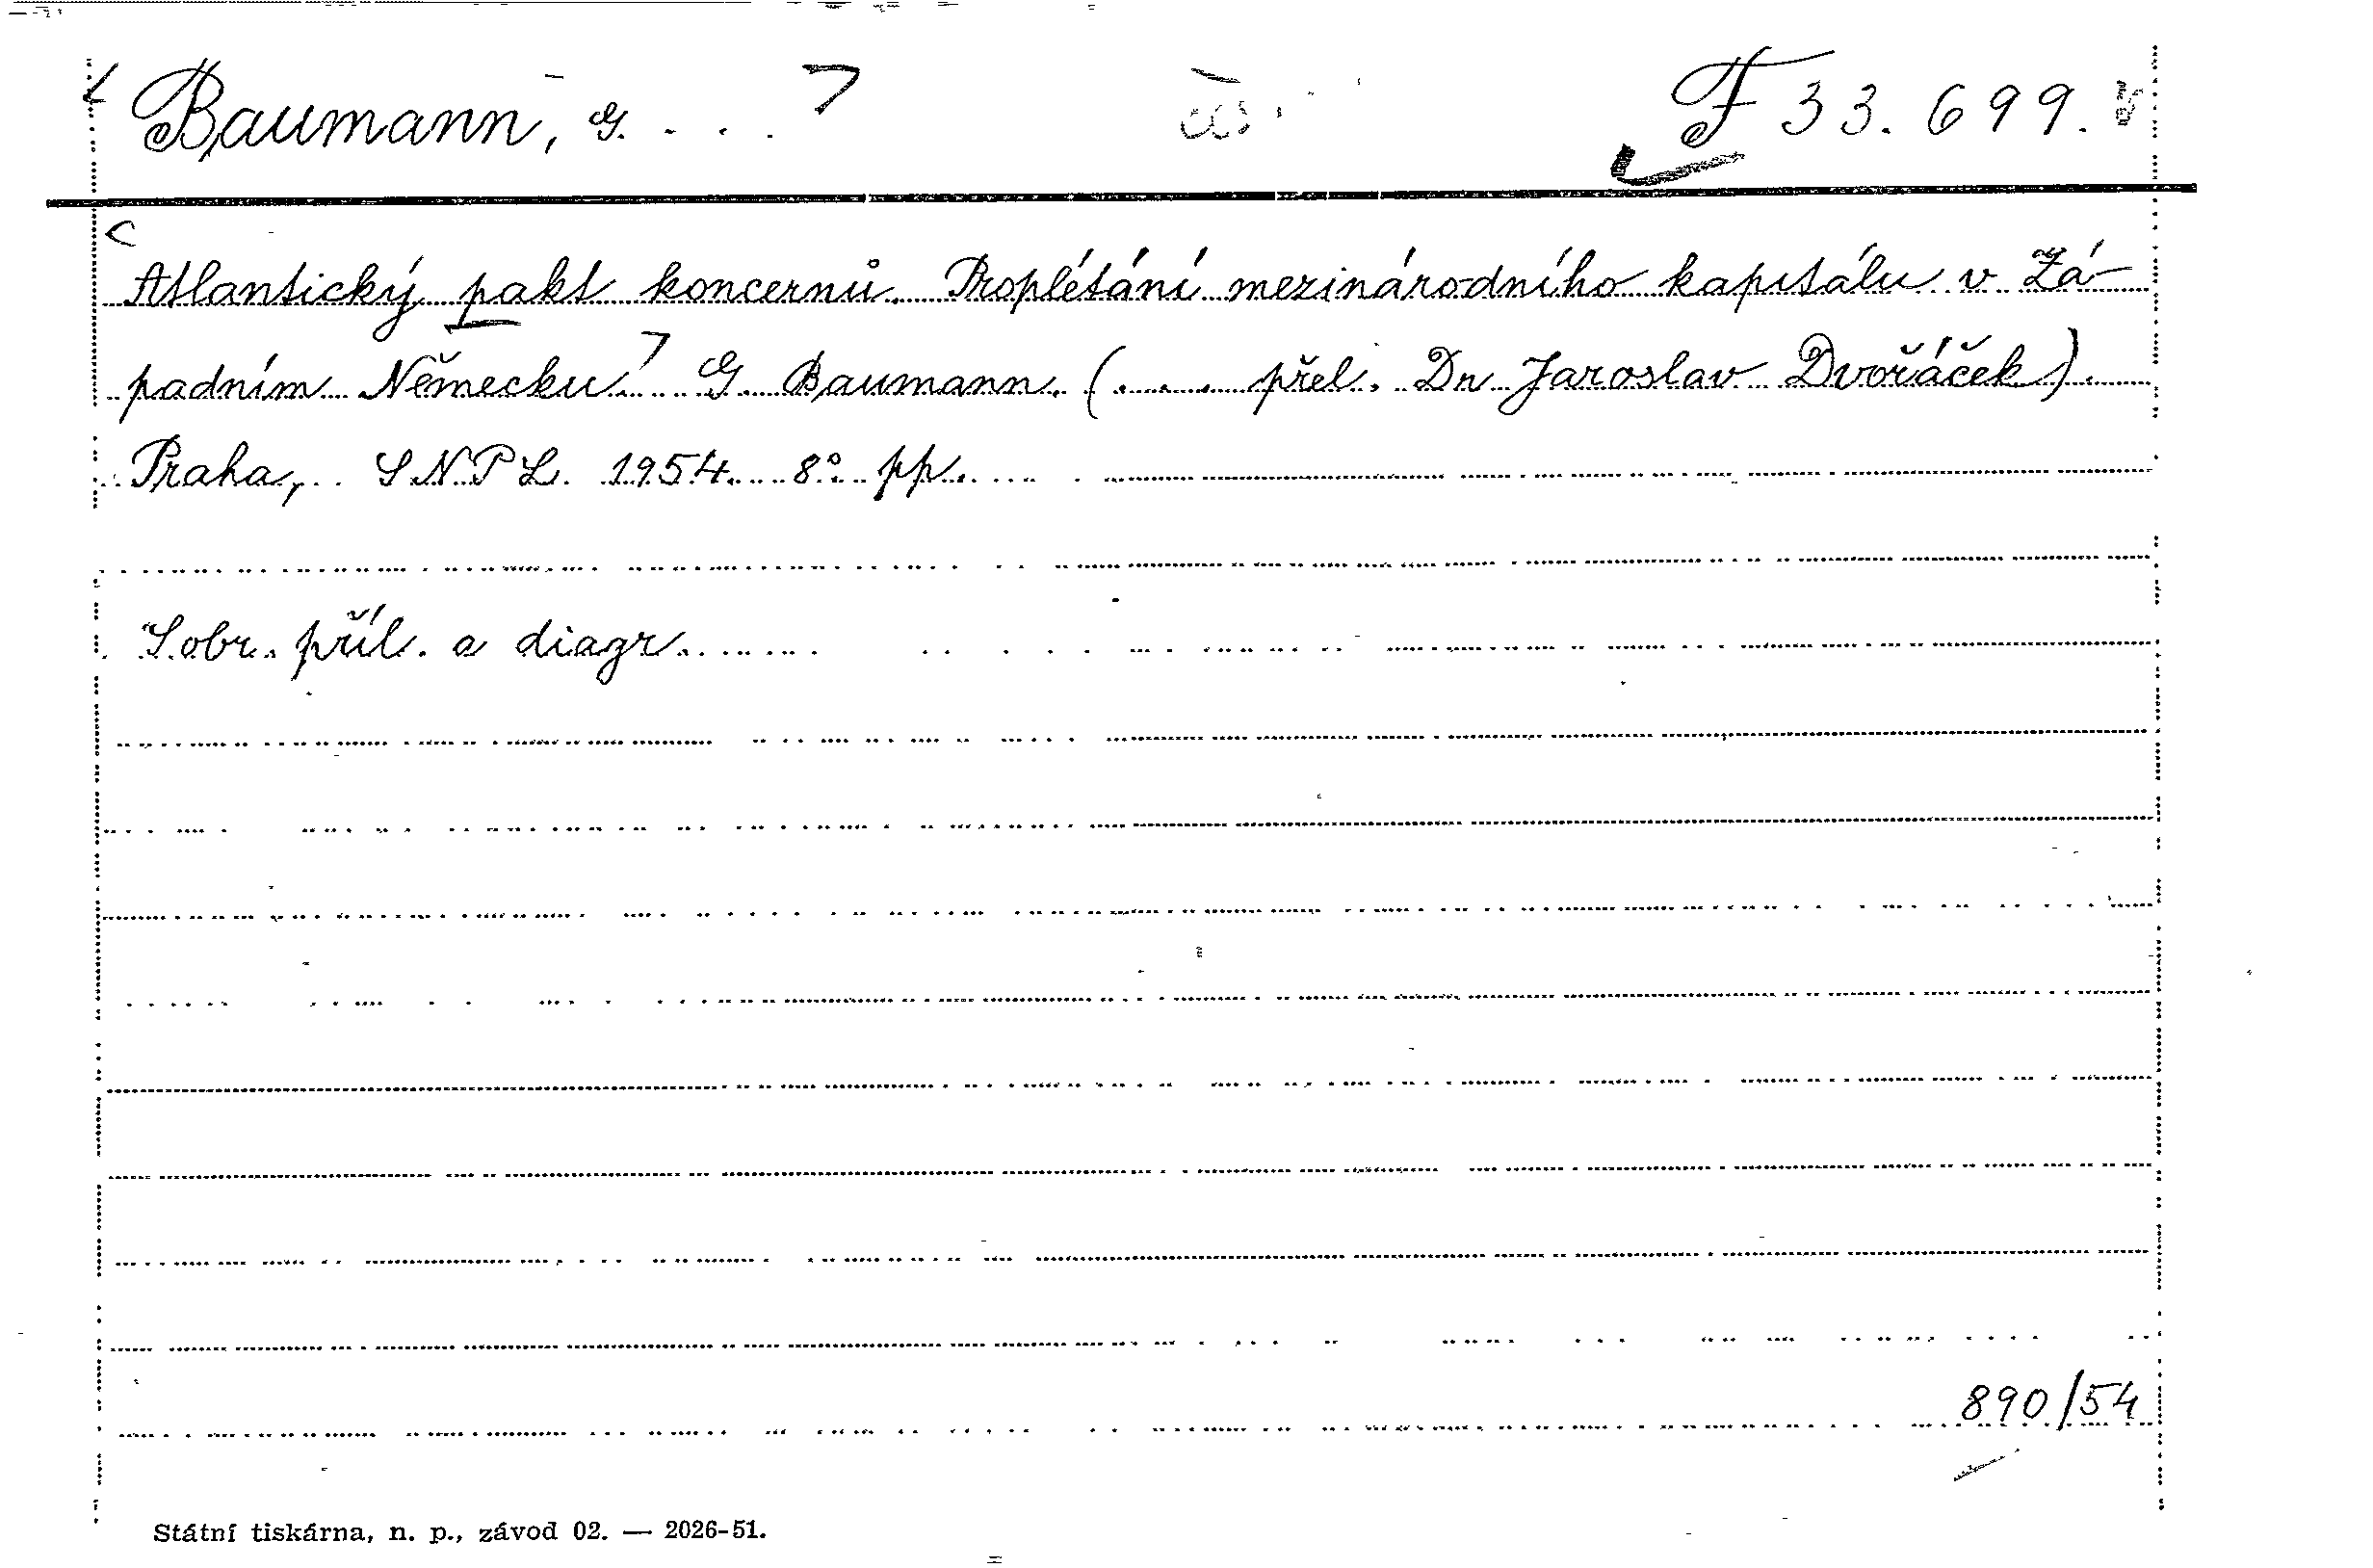 Baumann, G. . . . F 33.699.
Atlantický pakt koncernů. Proplétání mezinárodního kapitálu v Zá-
padním Německu. G. Baumann. (. . . přel. Dr Jaroslav Dvořáček).
Praha, SNPL. 1954. 8° pp.
S obr. příl. a diagr.
890/54
Státní tiskárna, n. p., závod 02. — 2026-51.